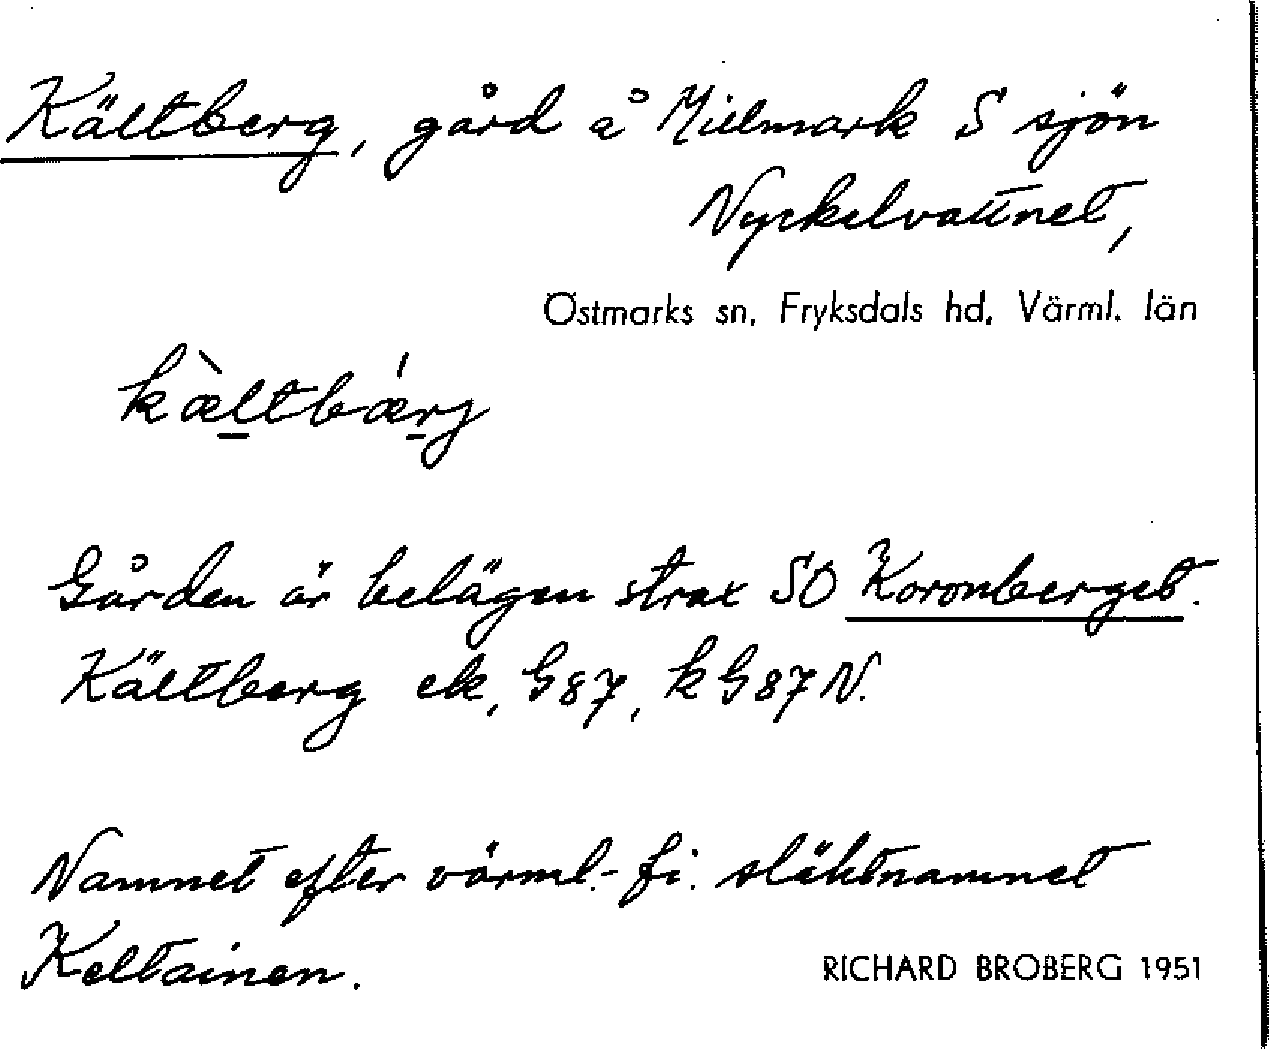 Kältberg, gård å Millmark S sjön
Nyckelvattnet,
Östmarks sn, Fryksdals hd, Värml. län
kæ̀ltbǽrj
Gården är belägen strax SO Koronberget.
Kältberg ek, G87, k G87 N.
Namnet efter värml.-fi. släktnamnet
Keltainen.
RICHARD BROBERG 1951